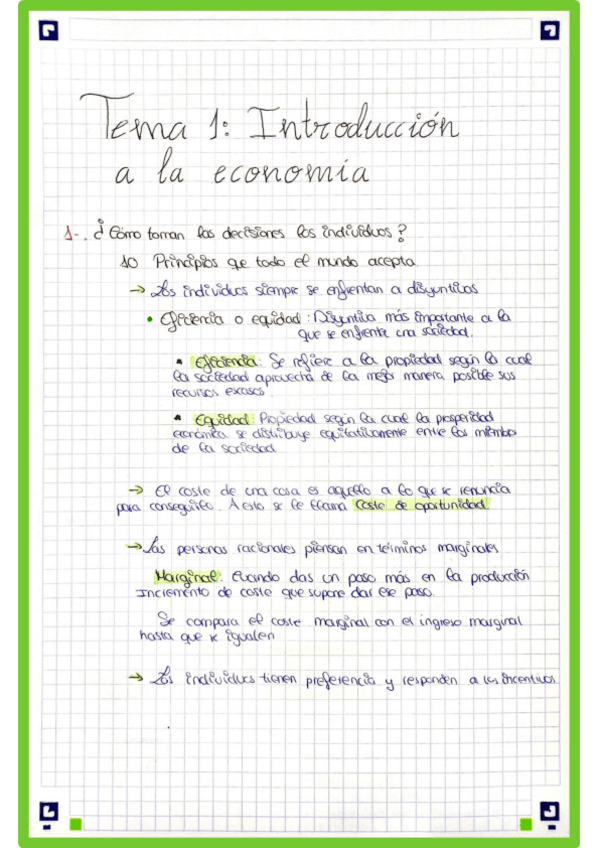 Tema 1: Introducción
a la economía
1-. ¿Cómo toman las decisiones los individuos?
10 Principios que todo el mundo acepta
→ Los individuos siempre se enfrentan a disyuntivas
• Eficiencia o equidad: Disyuntiva más importante a la
que se enfrente una sociedad.
▪ Eficiencia: Se refiere a la propiedad según la cual
la sociedad aprovecha de la mejor manera posible sus
recursos escasos
▪ Equidad: Propiedad según la cual la prosperidad
económica se distribuye equitativamente entre los miembros
de la sociedad
→ El coste de una cosa es aquello a lo que se renuncia
para conseguirlo. A esto se le llama Coste de oportunidad
→ Las personas racionales piensan en términos marginales
Marginal: Cuando das un paso más en la producción
Incremento de coste que supone dar ese paso.
Se compara el coste marginal con el ingreso marginal
hasta que se igualen
→ Los individuos tienen preferencia y responden a los incentivos